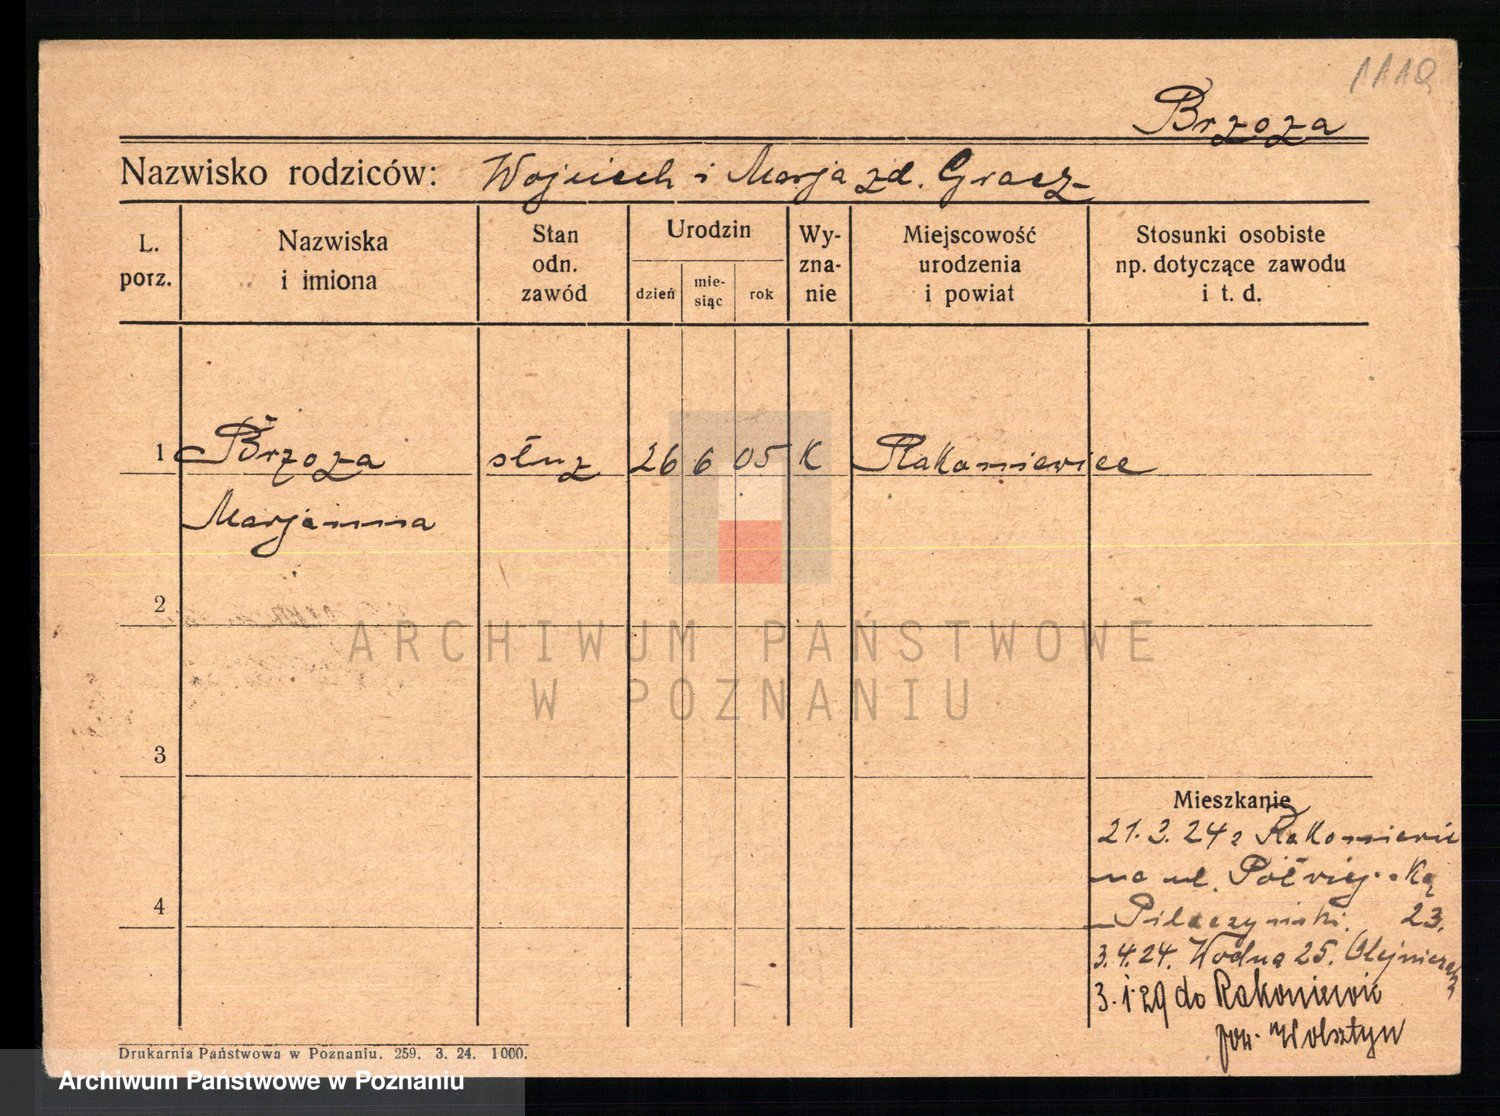 1119
Brzoza
Nazwisko rodziców: Wojciech i Marja zd. Gracz
L. porz.
Nazwiska i imiona
Stan odn. zawód
Urodzin
dzień
mie- siąc
rok
Wy- zna- nie
Miejscowość urodzenia i powiat
Stosunki osobiste np. dotyczące zawodu i t. d.
1 Brzoza służ 26 6 05 K Rakoniewice
Marjanna
2
ARCHIWUM PAŃSTWOWE
W POZNANIU
3
Mieszkanie
21.3.24 z Rakoniewic
na ul. Półwiejską
4
Pilaczyński. 23.
3.4.24. Wodna 25. Olejniczak
3.1.29 do Rakoniewic
pow. Wolsztyn
Drukarnia Państwowa w Poznaniu. 259. 3. 24. 1000.
Archiwum Państwowe w Poznaniu